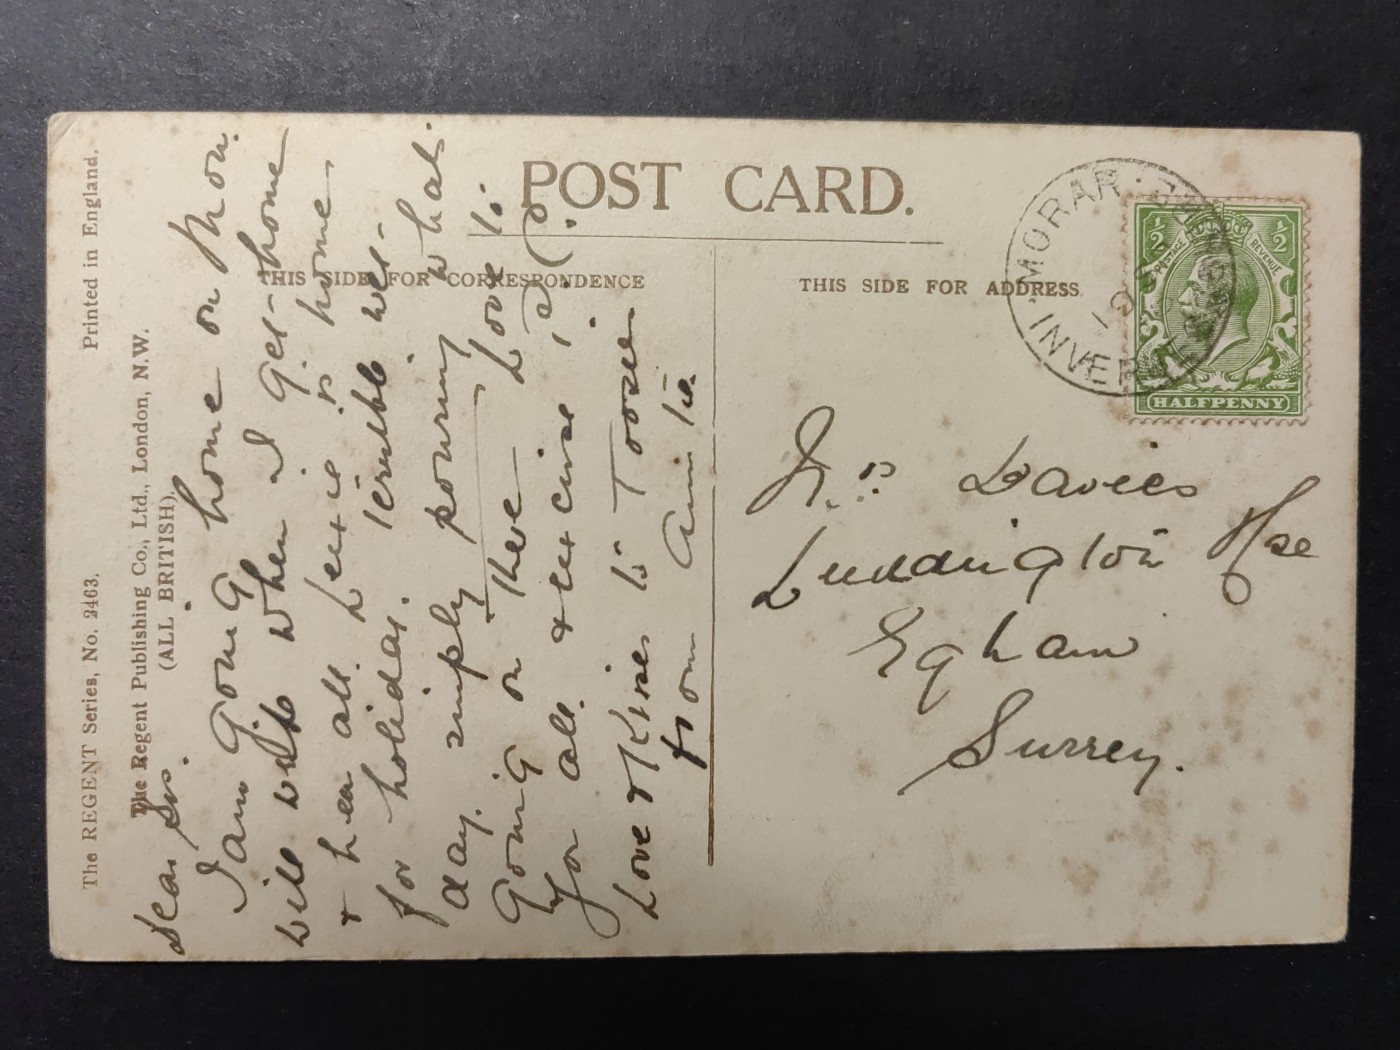 POST CARD.
THIS SIDE FOR CORRESPONDENCE
THIS SIDE FOR ADDRESS
The REGENT Series, No. 2463.
Printed in England.
The Regent Publishing Co., Ltd., London, N.W.
(ALL BRITISH)
Dear
I am going home on Mon.
will write when I get home
& hear all. is home
for holidays. Terrible wet
day. simply pouring what
going on there Love to
you all & excuse P.C.
Love & Kisses to
from Auntie
Mrs Davies
Luddington Hse
Egham
Surrey.
MORAR
INVER
½ ½
POSTAGE REVENUE
HALFPENNY